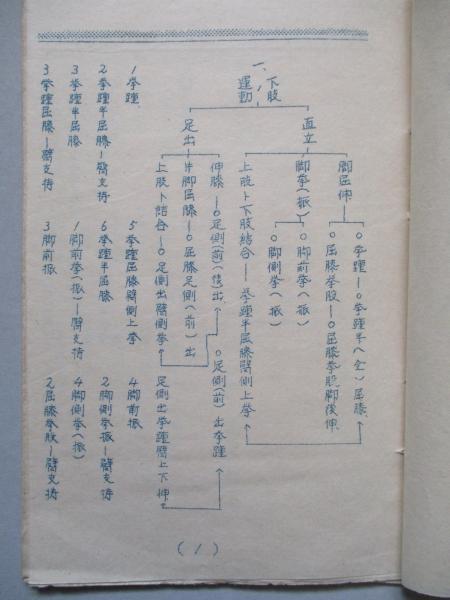 一、下股
運動
直立
脚屈伸
○挙踵―○挙踵半(全)屈膝
○屈膝挙股―○屈膝挙股脚後伸
脚挙(振)
○脚前挙(振)
○脚側挙(振)
上股ト下股結合―挙踵半屈膝臂側上挙
足出
伸膝―○足側(前)(後)出
○足側(前)出挙踵
片脚屈膝―○屈膝足側(前)出
上股ト結合―○足側出臂側挙
足側出挙踵臂上下伸
1挙踵
5挙踵屈膝臂側上挙
4脚前振
2挙踵半屈膝―臂支持
6挙踵半屈膝
2脚側挙振―臂支持
3挙踵半屈膝
1脚前挙(振)―臂支持
4脚側挙(振)
3挙踵屈膝―臂支持
3脚前振
2屈膝挙股―臂支持
(1)